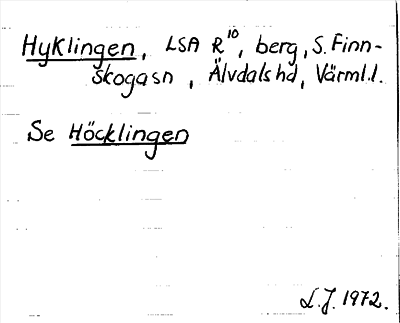 Hyklingen, LSA R¹⁰, berg, S. Finn-
skogasn, Älvdalshd, Värml.l.
Se Höcklingen
L.J. 1972.